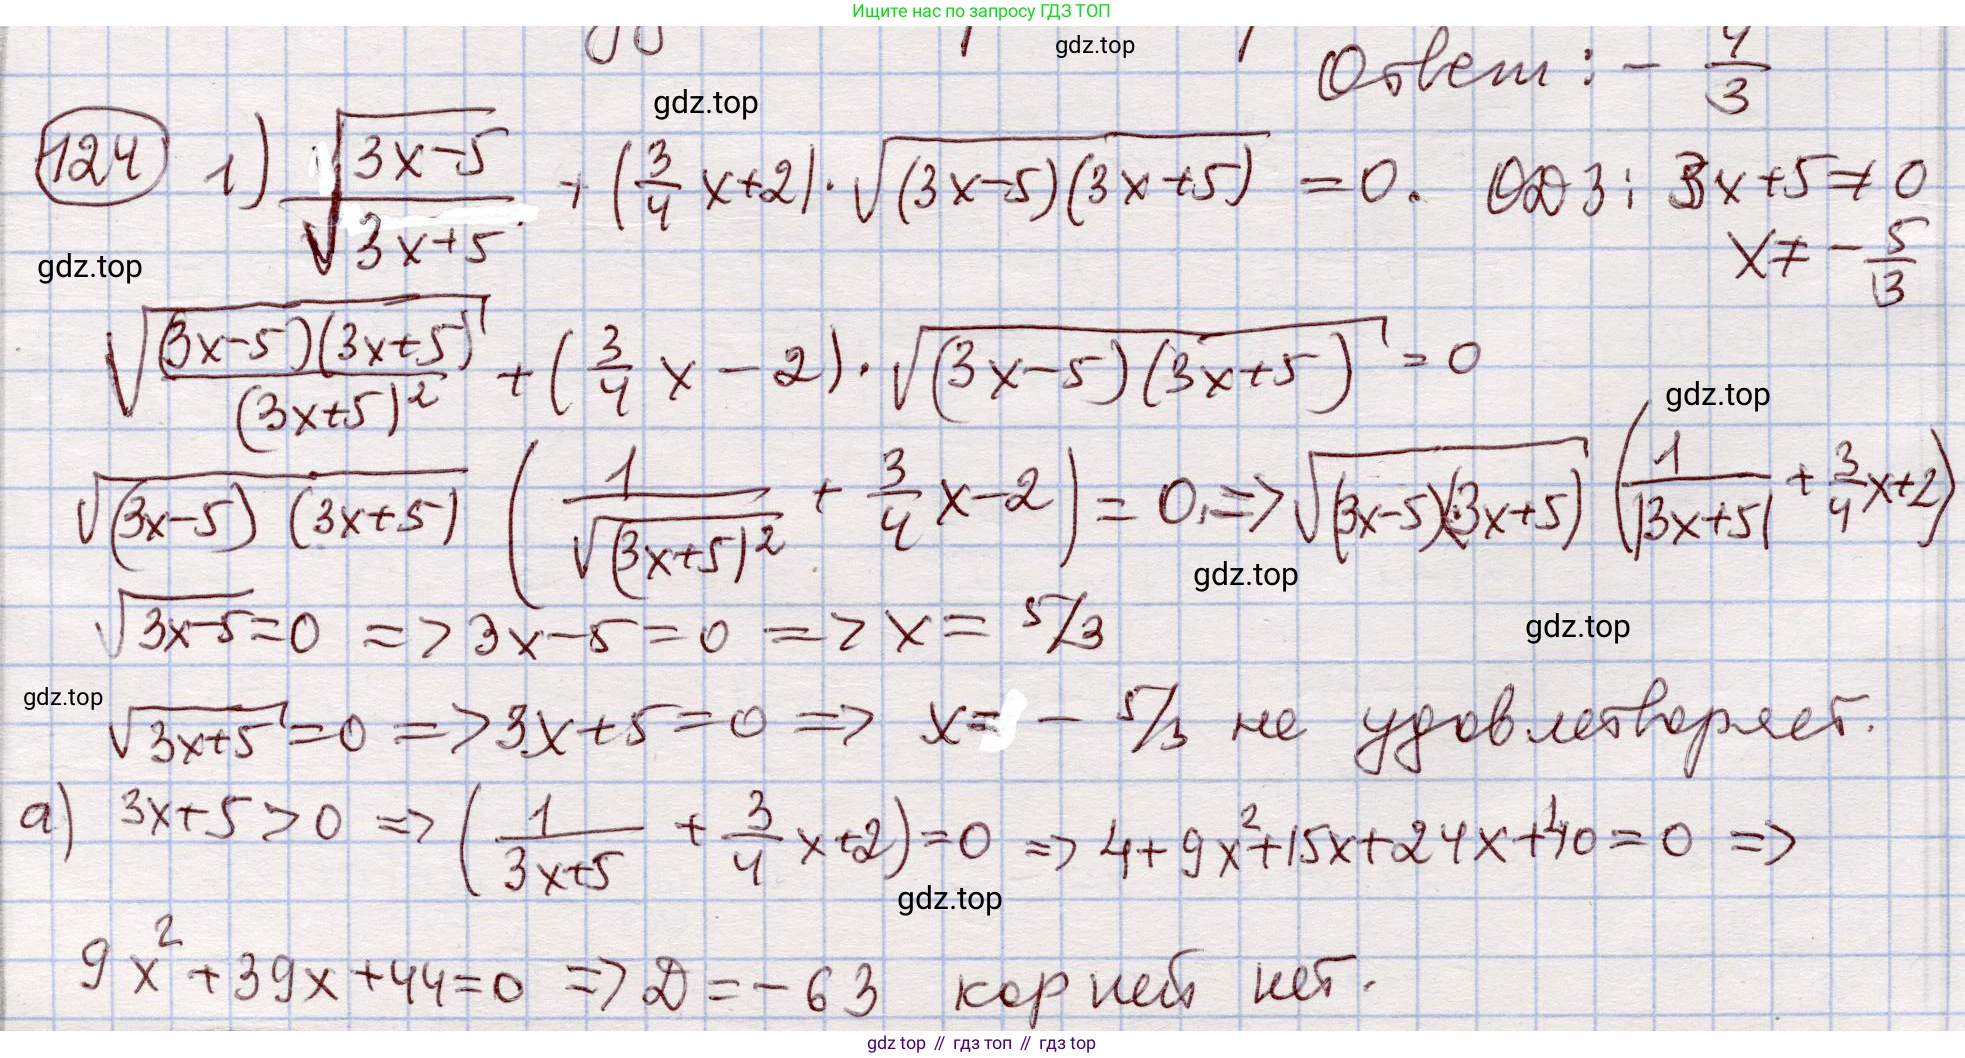 Ищите нас по запросу ГДЗ ТОП
gdz.top
Ответ: - 4/3
gdz.top
124 1) √(3x-5)/√(3x+5) + (3/4 x+2)·√((3x-5)(3x+5)) = 0. ОДЗ: 3x+5≠0
x≠ - 5/3
gdz.top
√((3x-5)(3x+5)/(3x+5)²) + (3/4 x - 2)·√((3x-5)(3x+5)) = 0
gdz.top
√((3x-5)(3x+5)) (1/√((3x+5)²) + 3/4 x-2) = 0, => √((3x-5)(3x+5)) (1/|3x+5| + 3/4 x+2)
gdz.top
√(3x-5)=0 => 3x-5=0 => x= 5/3
gdz.top
gdz.top
√(3x+5)=0 => 3x+5=0 => x= - 5/3 не удовлетворяет.
а) 3x+5>0 => (1/(3x+5) + 3/4 x+2)=0 => 4+9x²+15x+24x+40=0 =>
gdz.top
9x²+39x+44=0 => D=-63 корней нет.
gdz top // гдз топ // гдз top